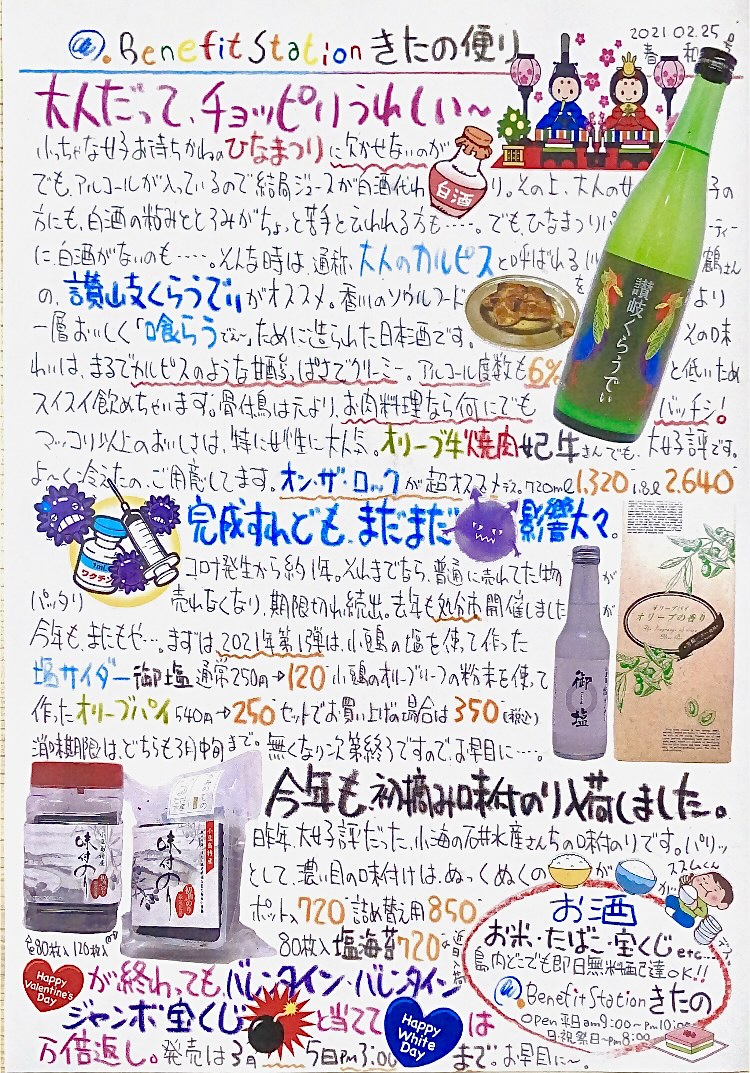 @.Benefit Station きたの便り
2021.02.25
春 和
大人だって、チョッピりうれしい〜
小っちゃな女子お待ちかねのひなまつりに欠かせないのが
白酒
でも、アルコールが入っているので結局ジュースが白酒代わり。その上、大人の女子の
方にも、白酒の粘みととろみがちょっと苦手と云われる方も……。でも、ひなまつりパーティー
に、白酒がないのも……。そんな時は、通称、大人のカルピスと呼ばれる川鶴さん
の、讃岐くらうでぃがオススメ。香川のソウルフード を より
一層おいしく「喰らうでぃ〜」ために造られた日本酒です。 その味
わいは、まるでカルピスのような甘酸っぱさでクリーミー。アルコール度数も6%と低いため
スイスイ飲めちゃいます。骨付鳥は元より、お肉料理なら何にでもバッチシ!
マッコリ以上のおいしさは、特に女性に大人気。オリーブ牛焼肉妃牛さんでも、大好評です。
よ〜く冷えたの、ご用意してます。オン・ザ・ロックが超オススメデス。720ml 1,320 1.8l 2,640
讃岐くらうでぃ
完成すれども、まだまだ影響大々。
ワクチン
コロナ発生から約1年。それまでなら、普通に売れてた物が
パッタリ売れなくなり、期限切れ続出。去年も処分市開催しましたが
今年も、またもや…。まずは2021年第1弾は、小豆島の塩を使って作った
塩サイダー御塩 通常250円→120 小豆島のオリーブリーフの粉末を使って
作ったオリーブパイ 540円→250 セットでお買い上げの場合は350(税込)
消味期限は、どちらも3月中旬まで。無くなり次第終了ですので、お早目に……。
御塩
オリーブパイ
オリーブの香り
今年も初摘み味付のり入荷しました。
昨年、大好評だった、小海の石井水産さんちの味付のりです。パリッ
として、濃い目の味付けは、ぬっくぬくの が ススムくん
デス。
ポット入720 詰め替え用850
80枚入 塩海苔720
味付のり
味付のり
各80枚入 120枚入
お酒
お米・たばこ・宝くじetc...
島内どこでも即日無料配達OK!!
@.Benefit Stationきたの
Open 平日am9:00〜pm10:00
日・祝祭日〜pm8:00
Happy Valentine's Day
が終わっても、バレンタイン・バレンタイン
ジャンボ宝くじ と当てて Happy White Day は
万倍返し。発売は3月5日pm3:00まで。お早目に〜。